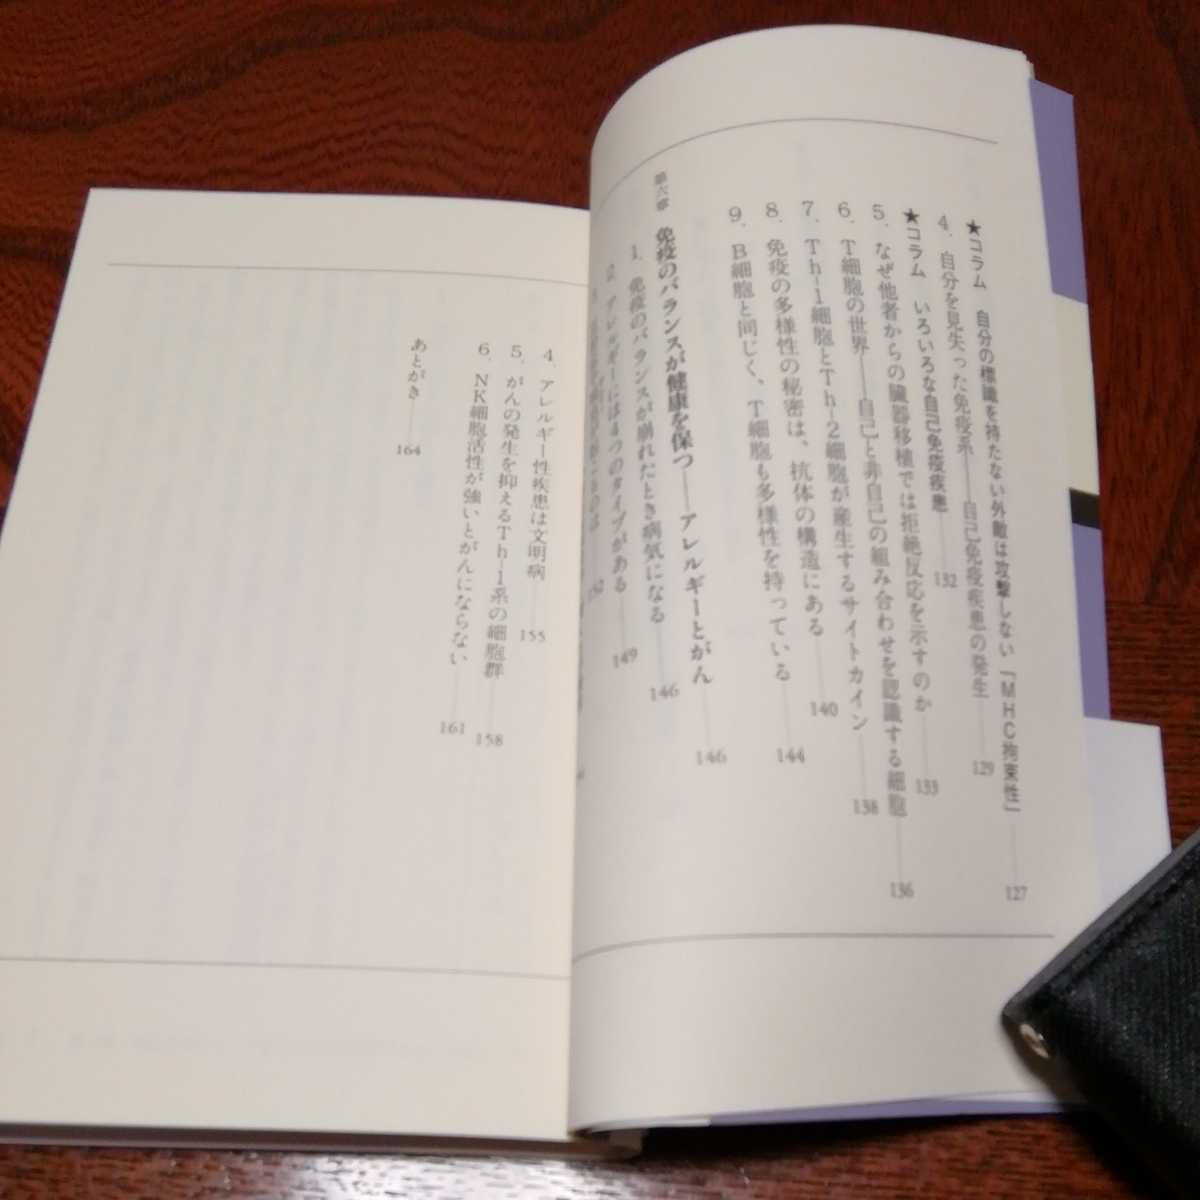 ★コラム 自分の標識を持たない外敵は攻撃しない「MHC拘束性」 127
4. 自分を見失った免疫系――自己免疫疾患の発生 129
★コラム いろいろな自己免疫疾患 132
5. なぜ他者からの臓器移植では拒絶反応を示すのか 133
6. T細胞の世界――自己と非自己の組み合わせを認識する細胞 136
7. Th-1細胞とTh-2細胞が産生するサイトカイン 138
8. 免疫の多様性の秘密は、抗体の構造にある 140
9. B細胞と同じく、T細胞も多様性を持っている 144
第六章 免疫のバランスが健康を保つ――アレルギーとがん 146
1. 免疫のバランスが崩れたとき病気になる 146
2. アレルギーには4つのタイプがある 149
152
4. アレルギー性疾患は文明病 155
5. がんの発生を抑えるTh-1系の細胞群 158
6. NK細胞活性が強いとがんにならない 161
あとがき 164